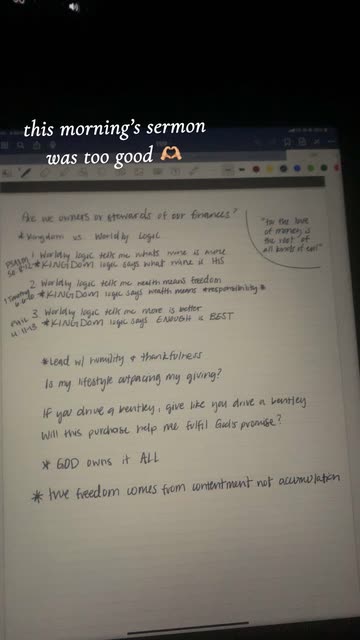 this morning's sermon
was too good 🫶🏼
Are we owners or stewards of our finances?
* Kingdom vs. Worldly Logic
"For the love
of money is
the root of
all kinds of evil"
PSALM
50:9-12
1. Worldly logic tells me what's mine is mine
*KINGDOM logic says what mine is HIS
2. Worldly logic tells me wealth means freedom
1 Timothy
*KINGDOM logic says wealth means *responsibility*
3. Worldly logic tells me more is better
PHIL
4:11-13
*KINGDOM logic says ENOUGH is BEST
*Lead w/ humility & thankfulness
Is my lifestyle outpacing my giving?
If you drive a bentley, give like you drive a bentley
Will this purchase help me fulfil God's promise?
* GOD owns it ALL
* true freedom comes from contentment not accumulation